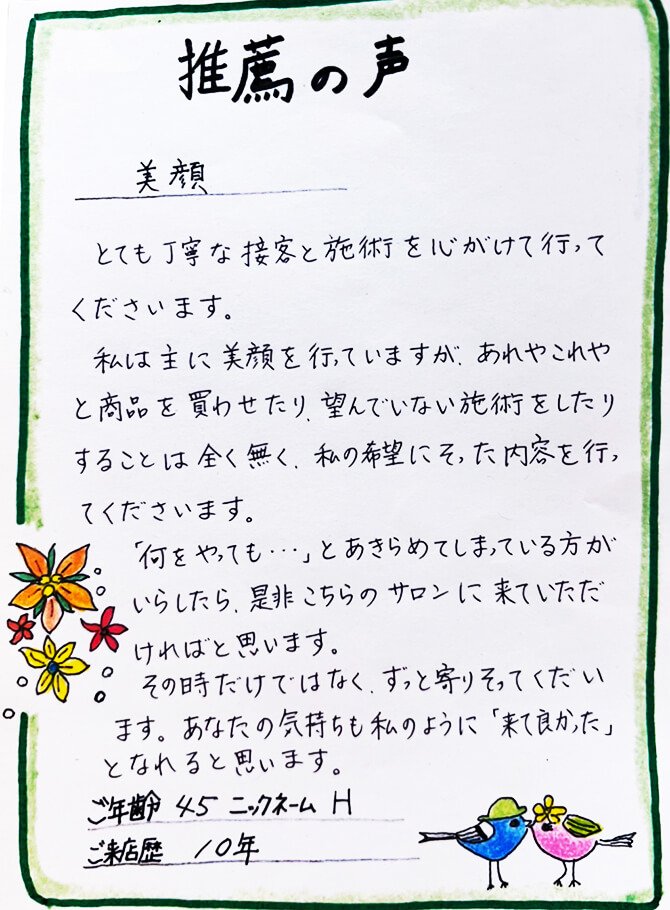 推薦の声
美顔
とても丁寧な接客と施術を心がけて行って
くださいます。
私は主に美顔を行っていますが、あれやこれや
と商品を買わせたり、望んでいない施術をしたり
することは全く無く、私の希望にそった内容を行っ
てくださいます。
「何をやっても・・・」とあきらめてしまっている方が
いらしたら、是非こちらのサロンに来ていただ
ければと思います。
その時だけではなく、ずっと寄りそってくだい
ます。あなたの気持ちも私のように「来て良かった」
となれると思います。
ご年齢 45 ニックネーム H
ご来店歴 10年